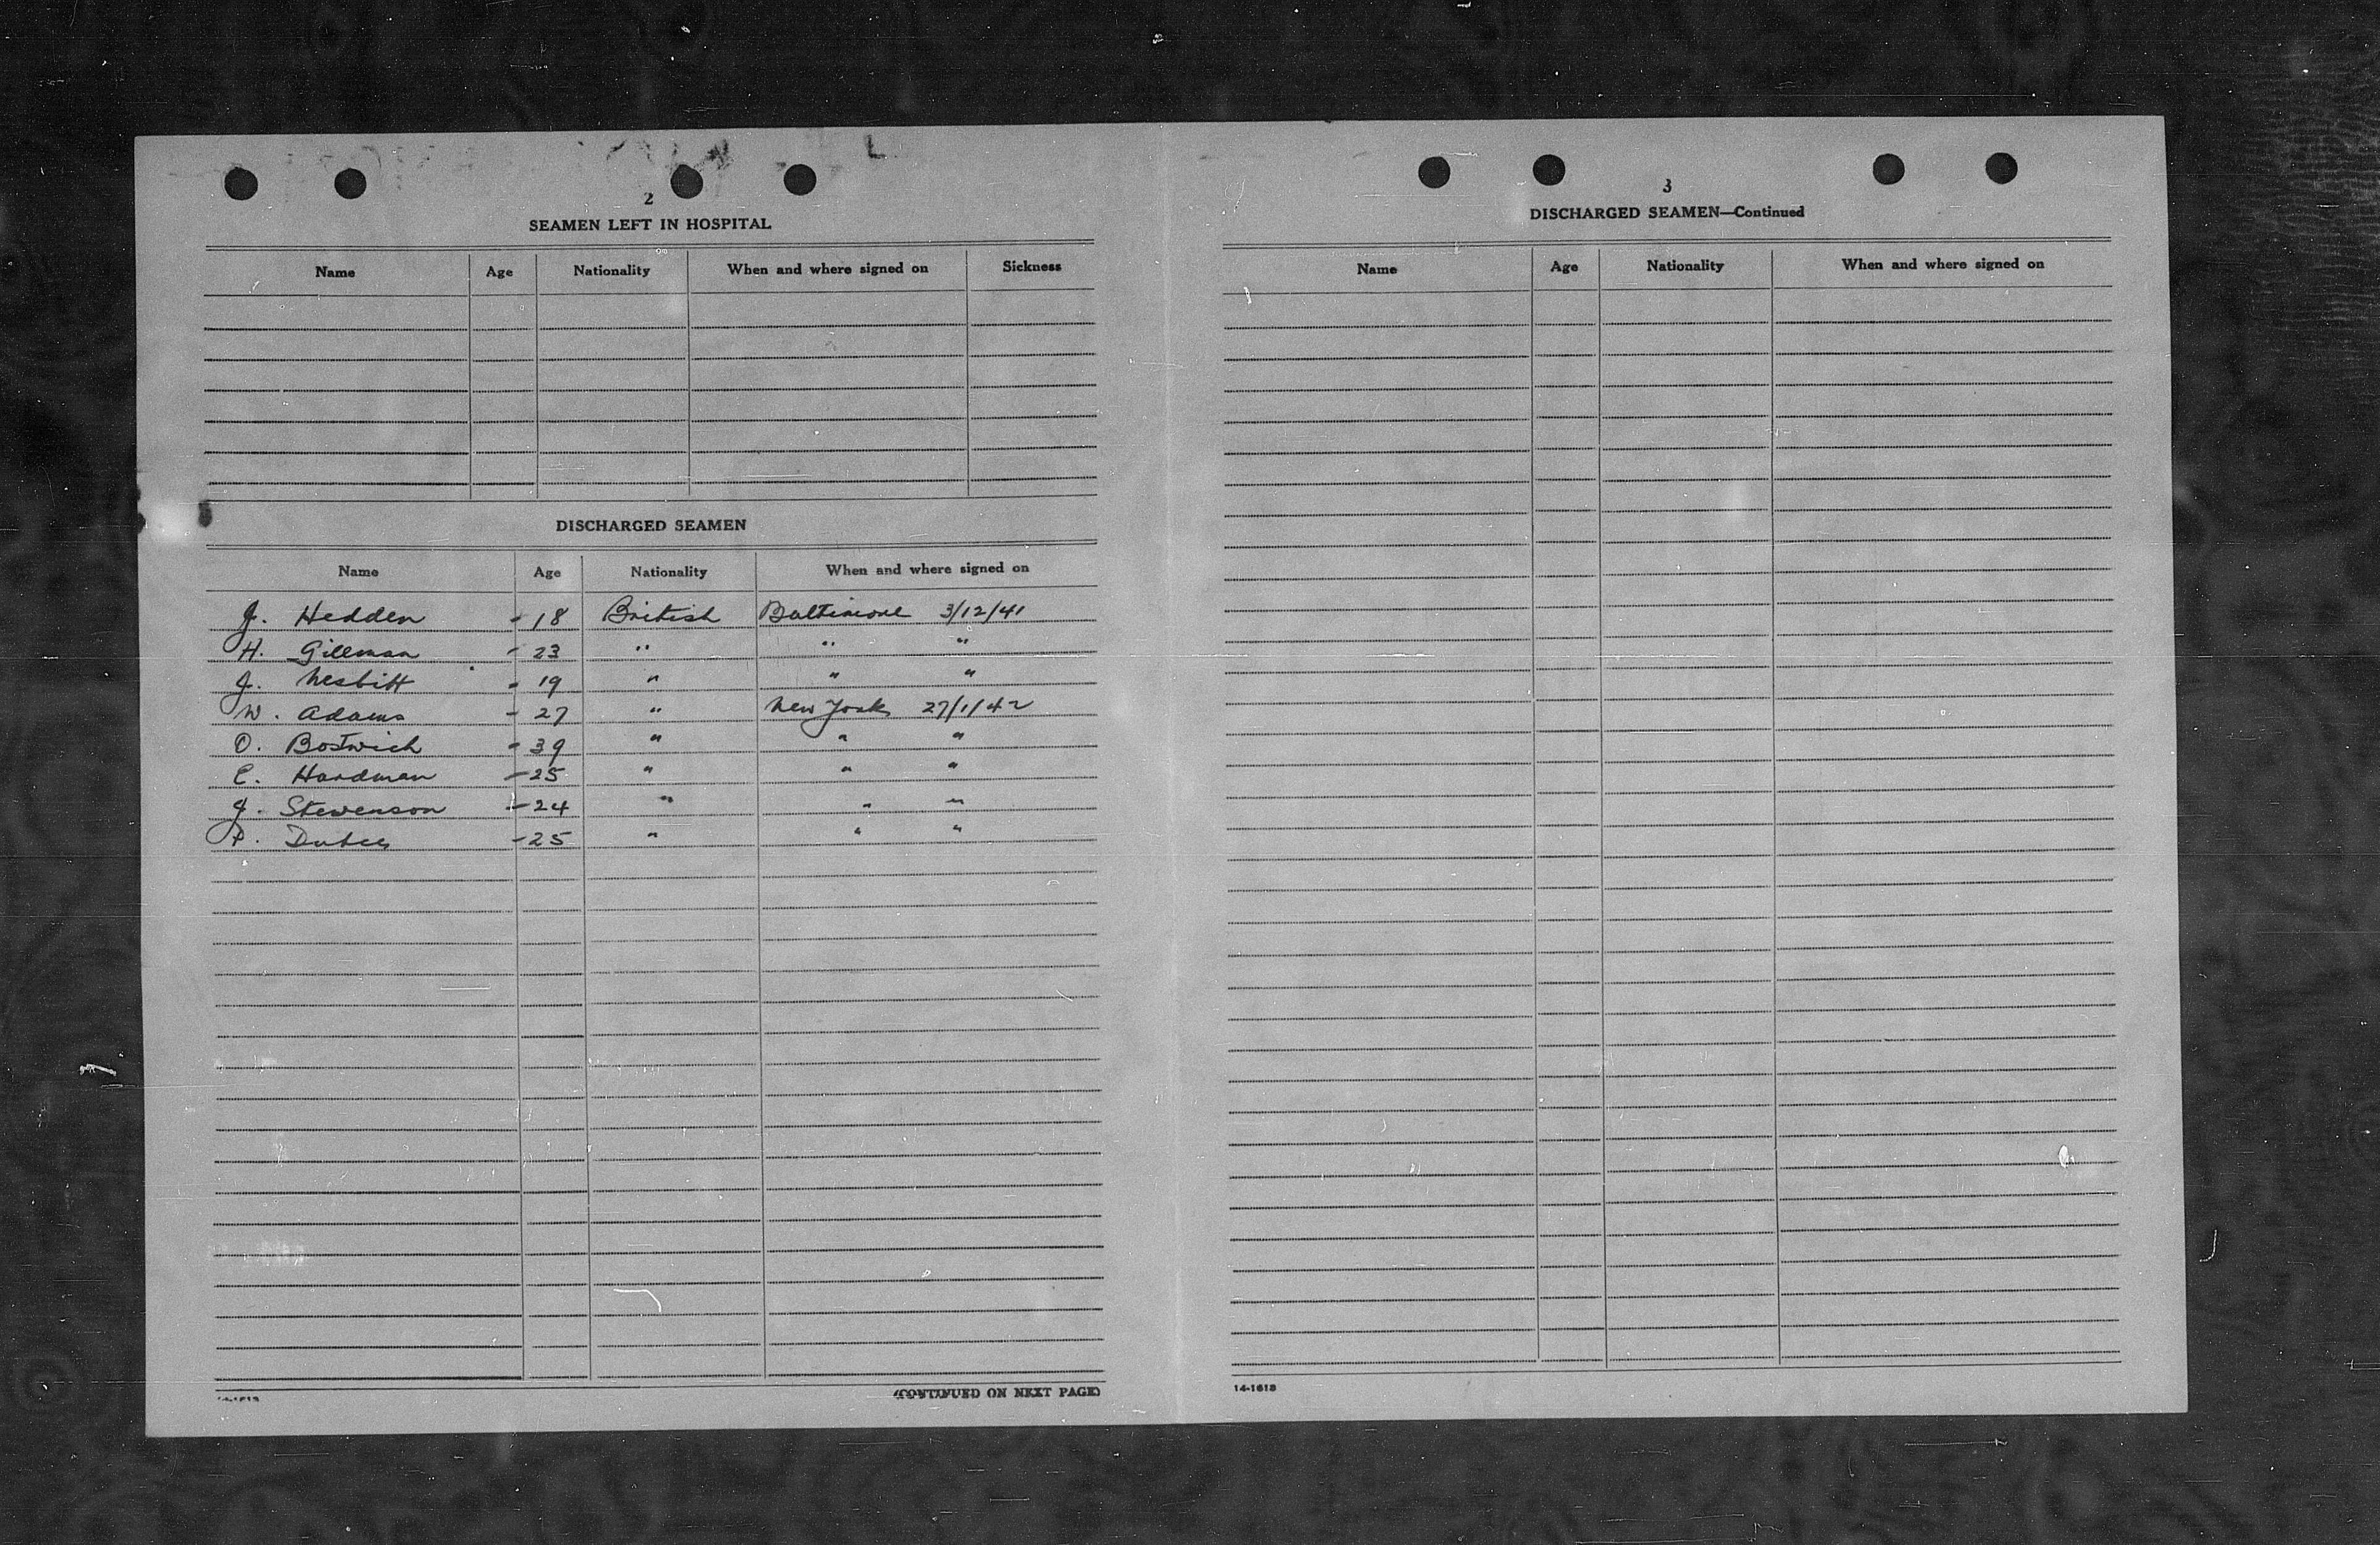 2
SEAMEN LEFT IN HOSPITAL
Name Age Nationality When and where signed on Sickness
DISCHARGED SEAMEN
Name Age Nationality When and where signed on
J. Hedden - 18 British Baltimore 3/12/41
H. Gillman - 23 " " "
J. Nesbitt - 19 " " "
W. Adams - 27 " New York 27/1/42
O. Bostwick - 39 " " "
E. Hardman - 25 " " "
J. Stevenson - 24 " " "
P. - 25 " " "
(CONTINUED ON NEXT PAGE)
3
DISCHARGED SEAMEN—Continued
Name Age Nationality When and where signed on
14-1613